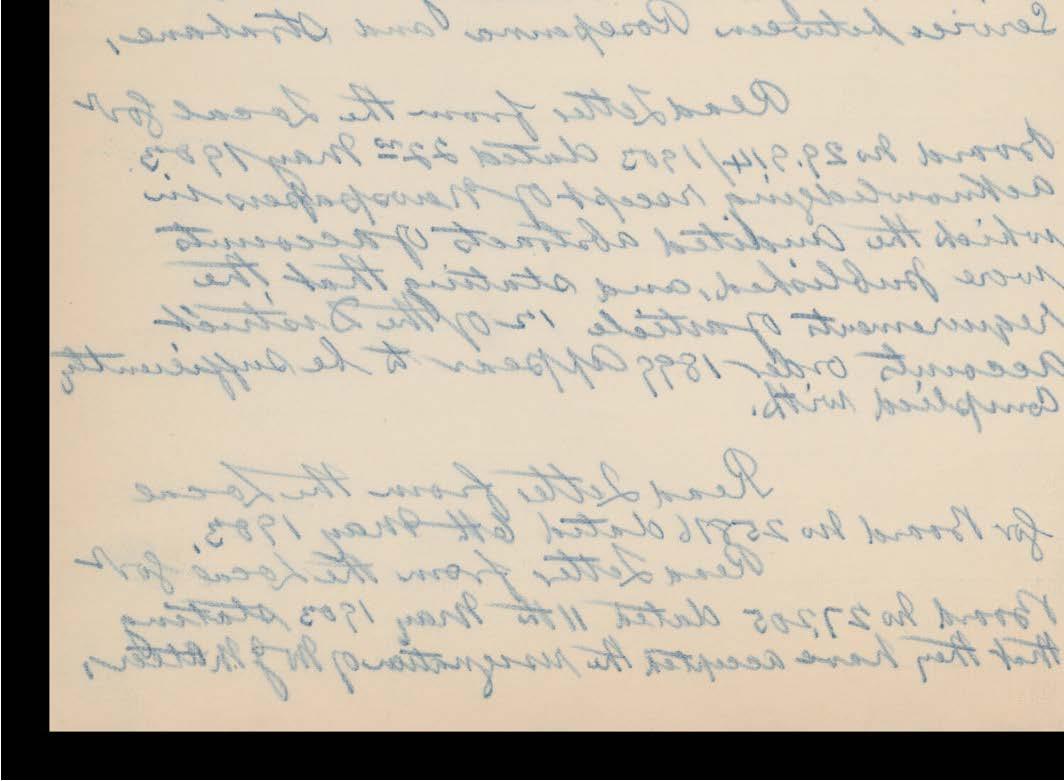 Service between Rosepenna and Strabane,
Read Letter from the Local Govt
Board No 29.914/1903 dated 22nd May 1903
acknowledging receipt of Newspapers in
which the Audited abstracts of Accounts
were published, and stating that the
requirements of article 12 of the District
Accounts order 1899 appear to be sufficiently
Complied with.
Read Letter from the Local
Gov Board No 25816 dated 6th May 1903.
Read Letter from the Local Govt
Board No 27205 dated 11th May 1903 stating
that they have accepted the resignation of